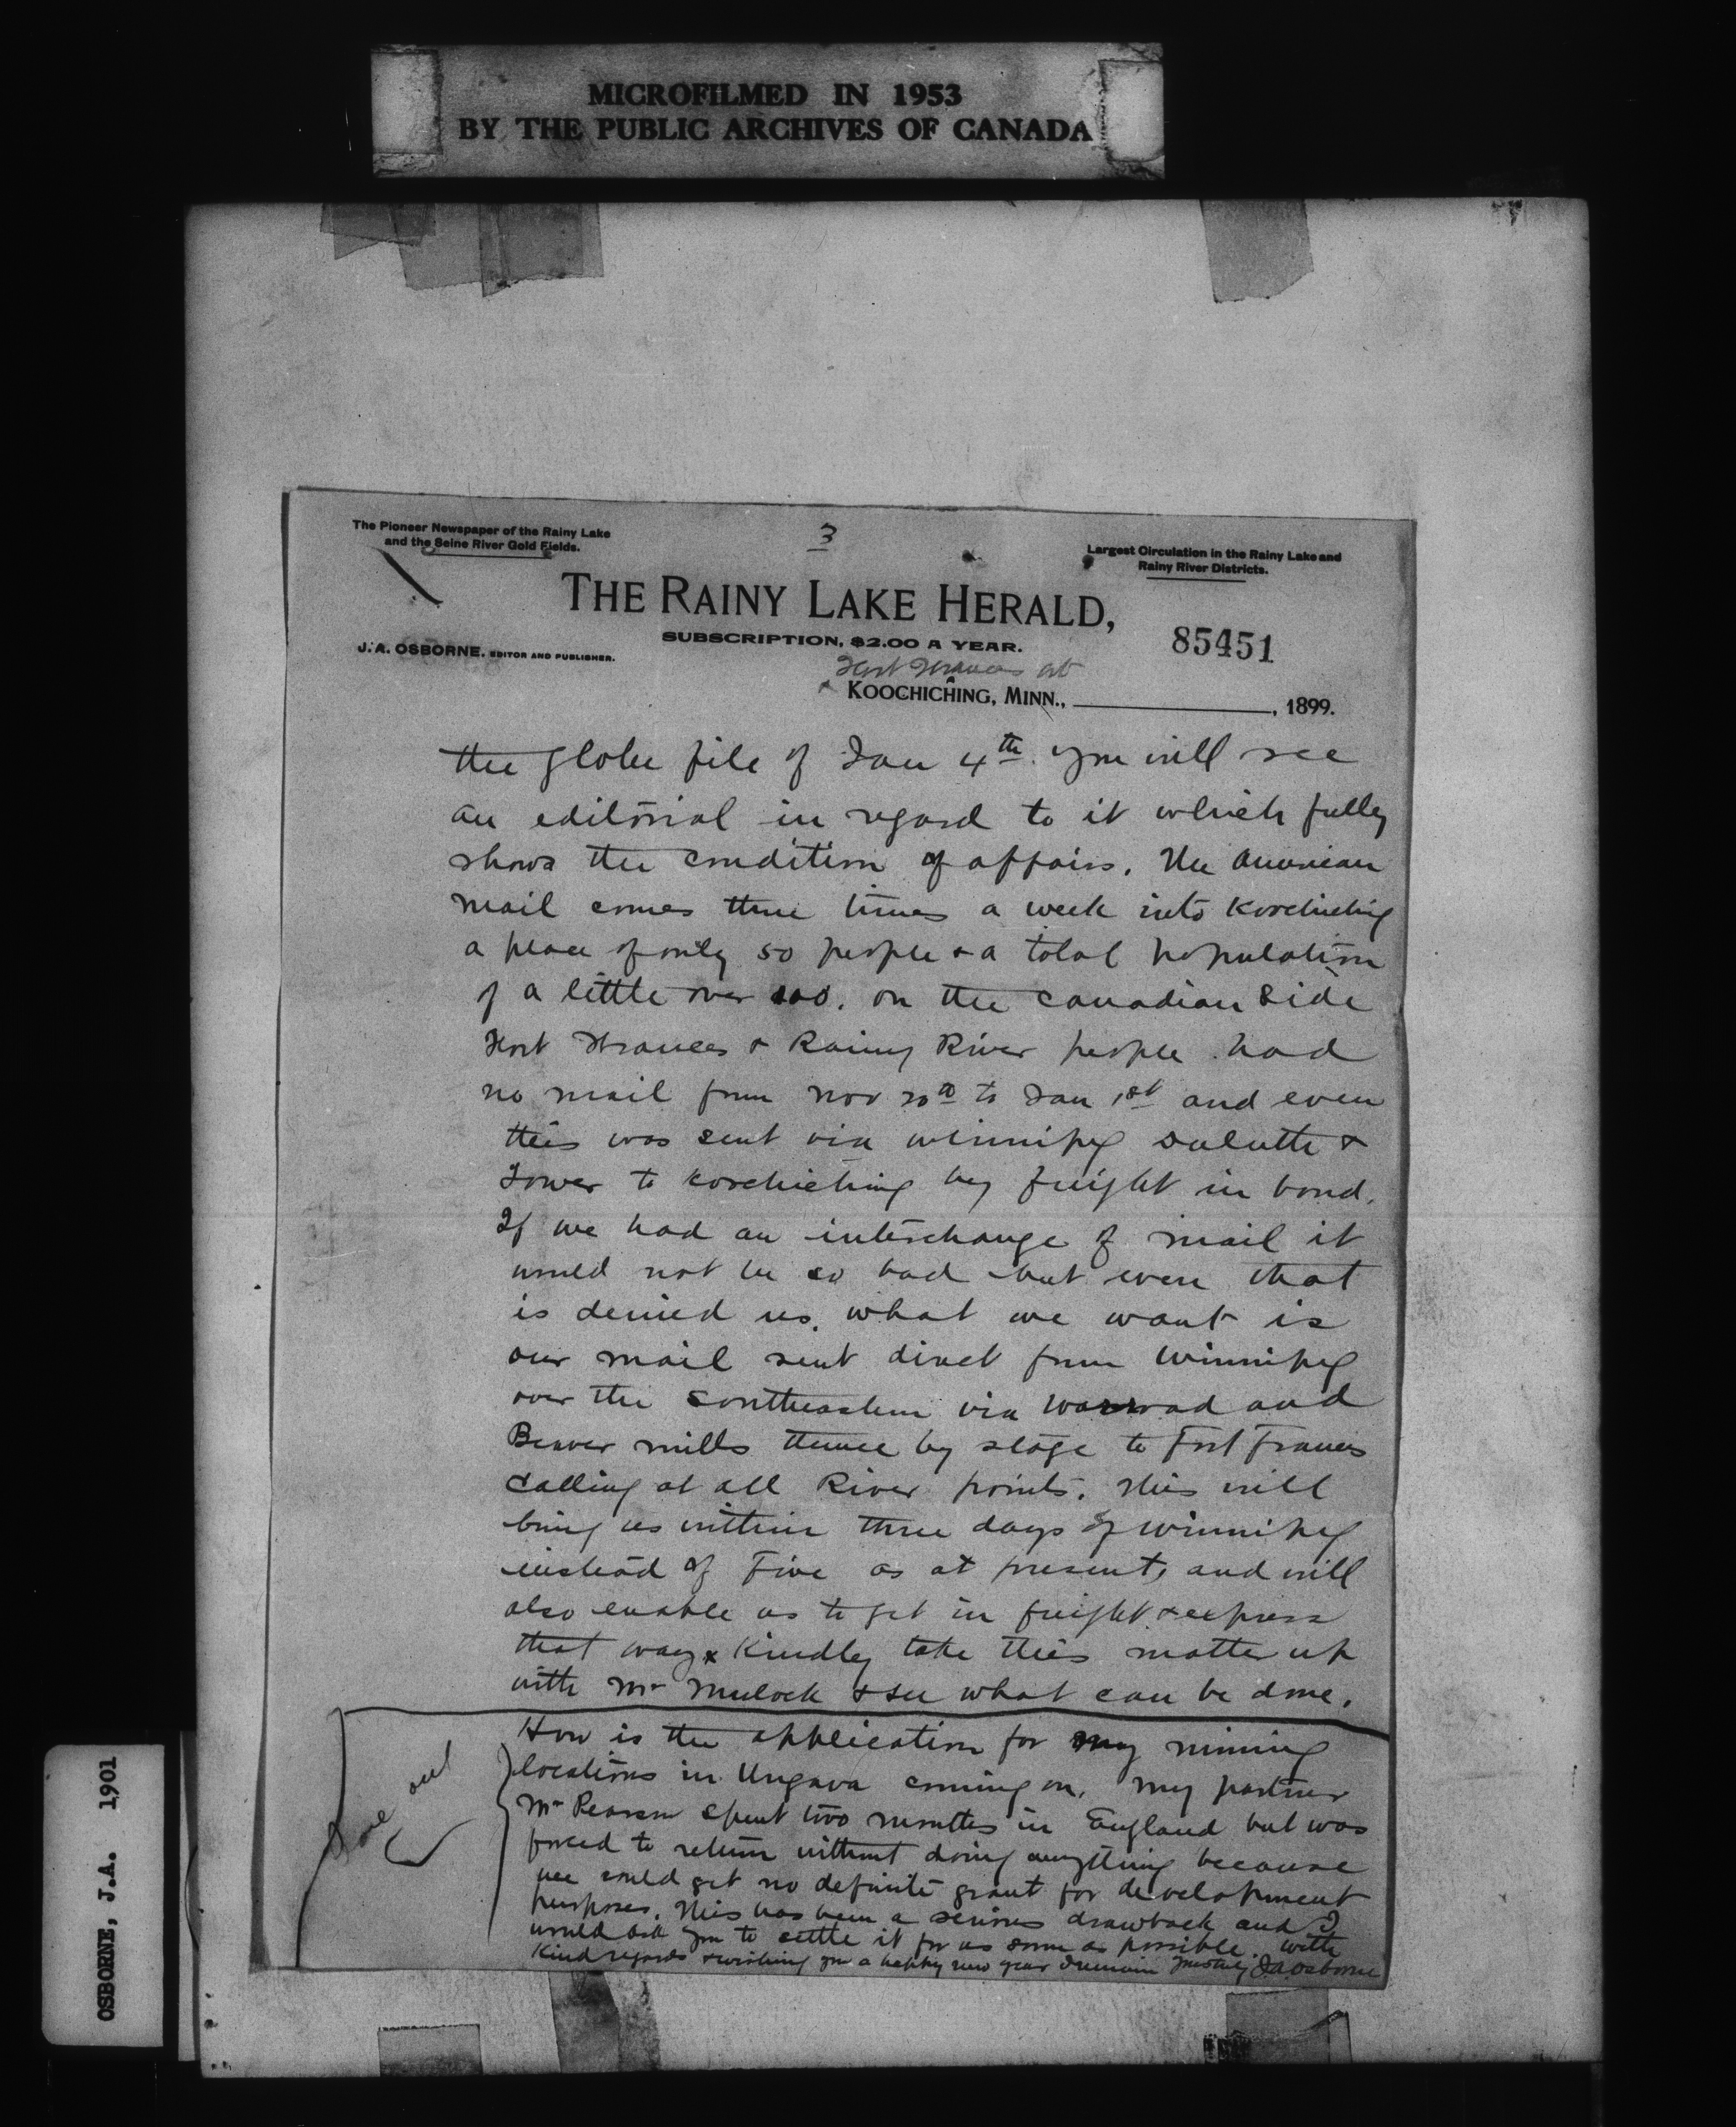 MICROFILMED IN 1953
BY THE PUBLIC ARCHIVES OF CANADA
The Pioneer Newspaper of the Rainy Lake
and the Seine River Gold Fields.
3
Largest Circulation in the Rainy Lake and
Rainy River Districts.
THE RAINY LAKE HERALD,
SUBSCRIPTION, $2.00 A YEAR.
85451
J. A. OSBORNE, EDITOR AND PUBLISHER.
Fort Frances Ont
KOOCHICHING, MINN., , 1899.
the Globe file of Jan 4th. you will see
an editorial in regard to it which fully
shows the condition of affairs. The American
mail comes three times a week into Koochiching
a place of only 50 people & a total population
of a little over 100. on the Canadian Side
Fort Frances & Rainy River people had
no mail from Nov 20th to Jan 1st and even
this was sent via Winnipeg Duluth &
Tower to Koochiching by freight in bond.
If we had an interchange of mail it
would not be so bad but even that
is denied us. what we want is
our mail sent direct from Winnipeg
over the Southeastern via Warroad and
Beaver mills thence by stage to Fort Frances
calling at all River points. This will
bring us within three days of Winnipeg
instead of Five as at present, and will
also enable us to get in freight & express
that way & Kindly take this matter up
with Mr Mulock & see what can be done.
How is the application for my mining
locations in Ungava coming on. My partner
Mr Pearson spent two months in England but was
forced to return without doing anything because
we could get no definite grant for development
purposes. This has been a serious drawback and I
would ask you to settle it for us soon as possible. With
Kind regards & wishing you a happy new year I remain yours truly J A Osborne
out
OSBORNE, J.A. 1901